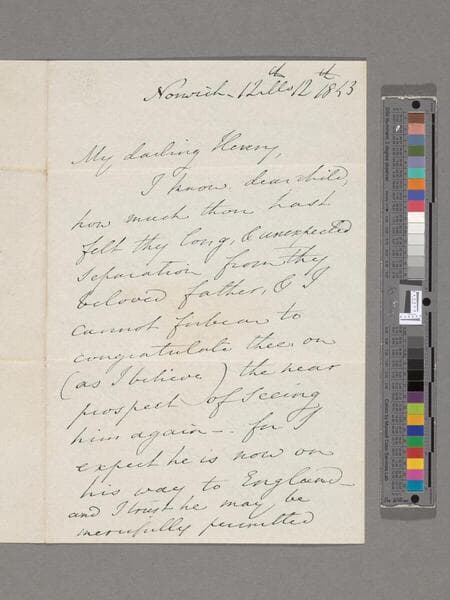 Norwich 12th 1843
My darling Henry,
I know, dear child,
how much thou hast
felt thy long, & unexpected
separation from thy
beloved father, & I
cannot forbear to
congratulate thee on
(as I believe) the near
prospect of seeing
him again - for I
expect he is now on
his way to England -
and I trust he may be
mercifully permitted